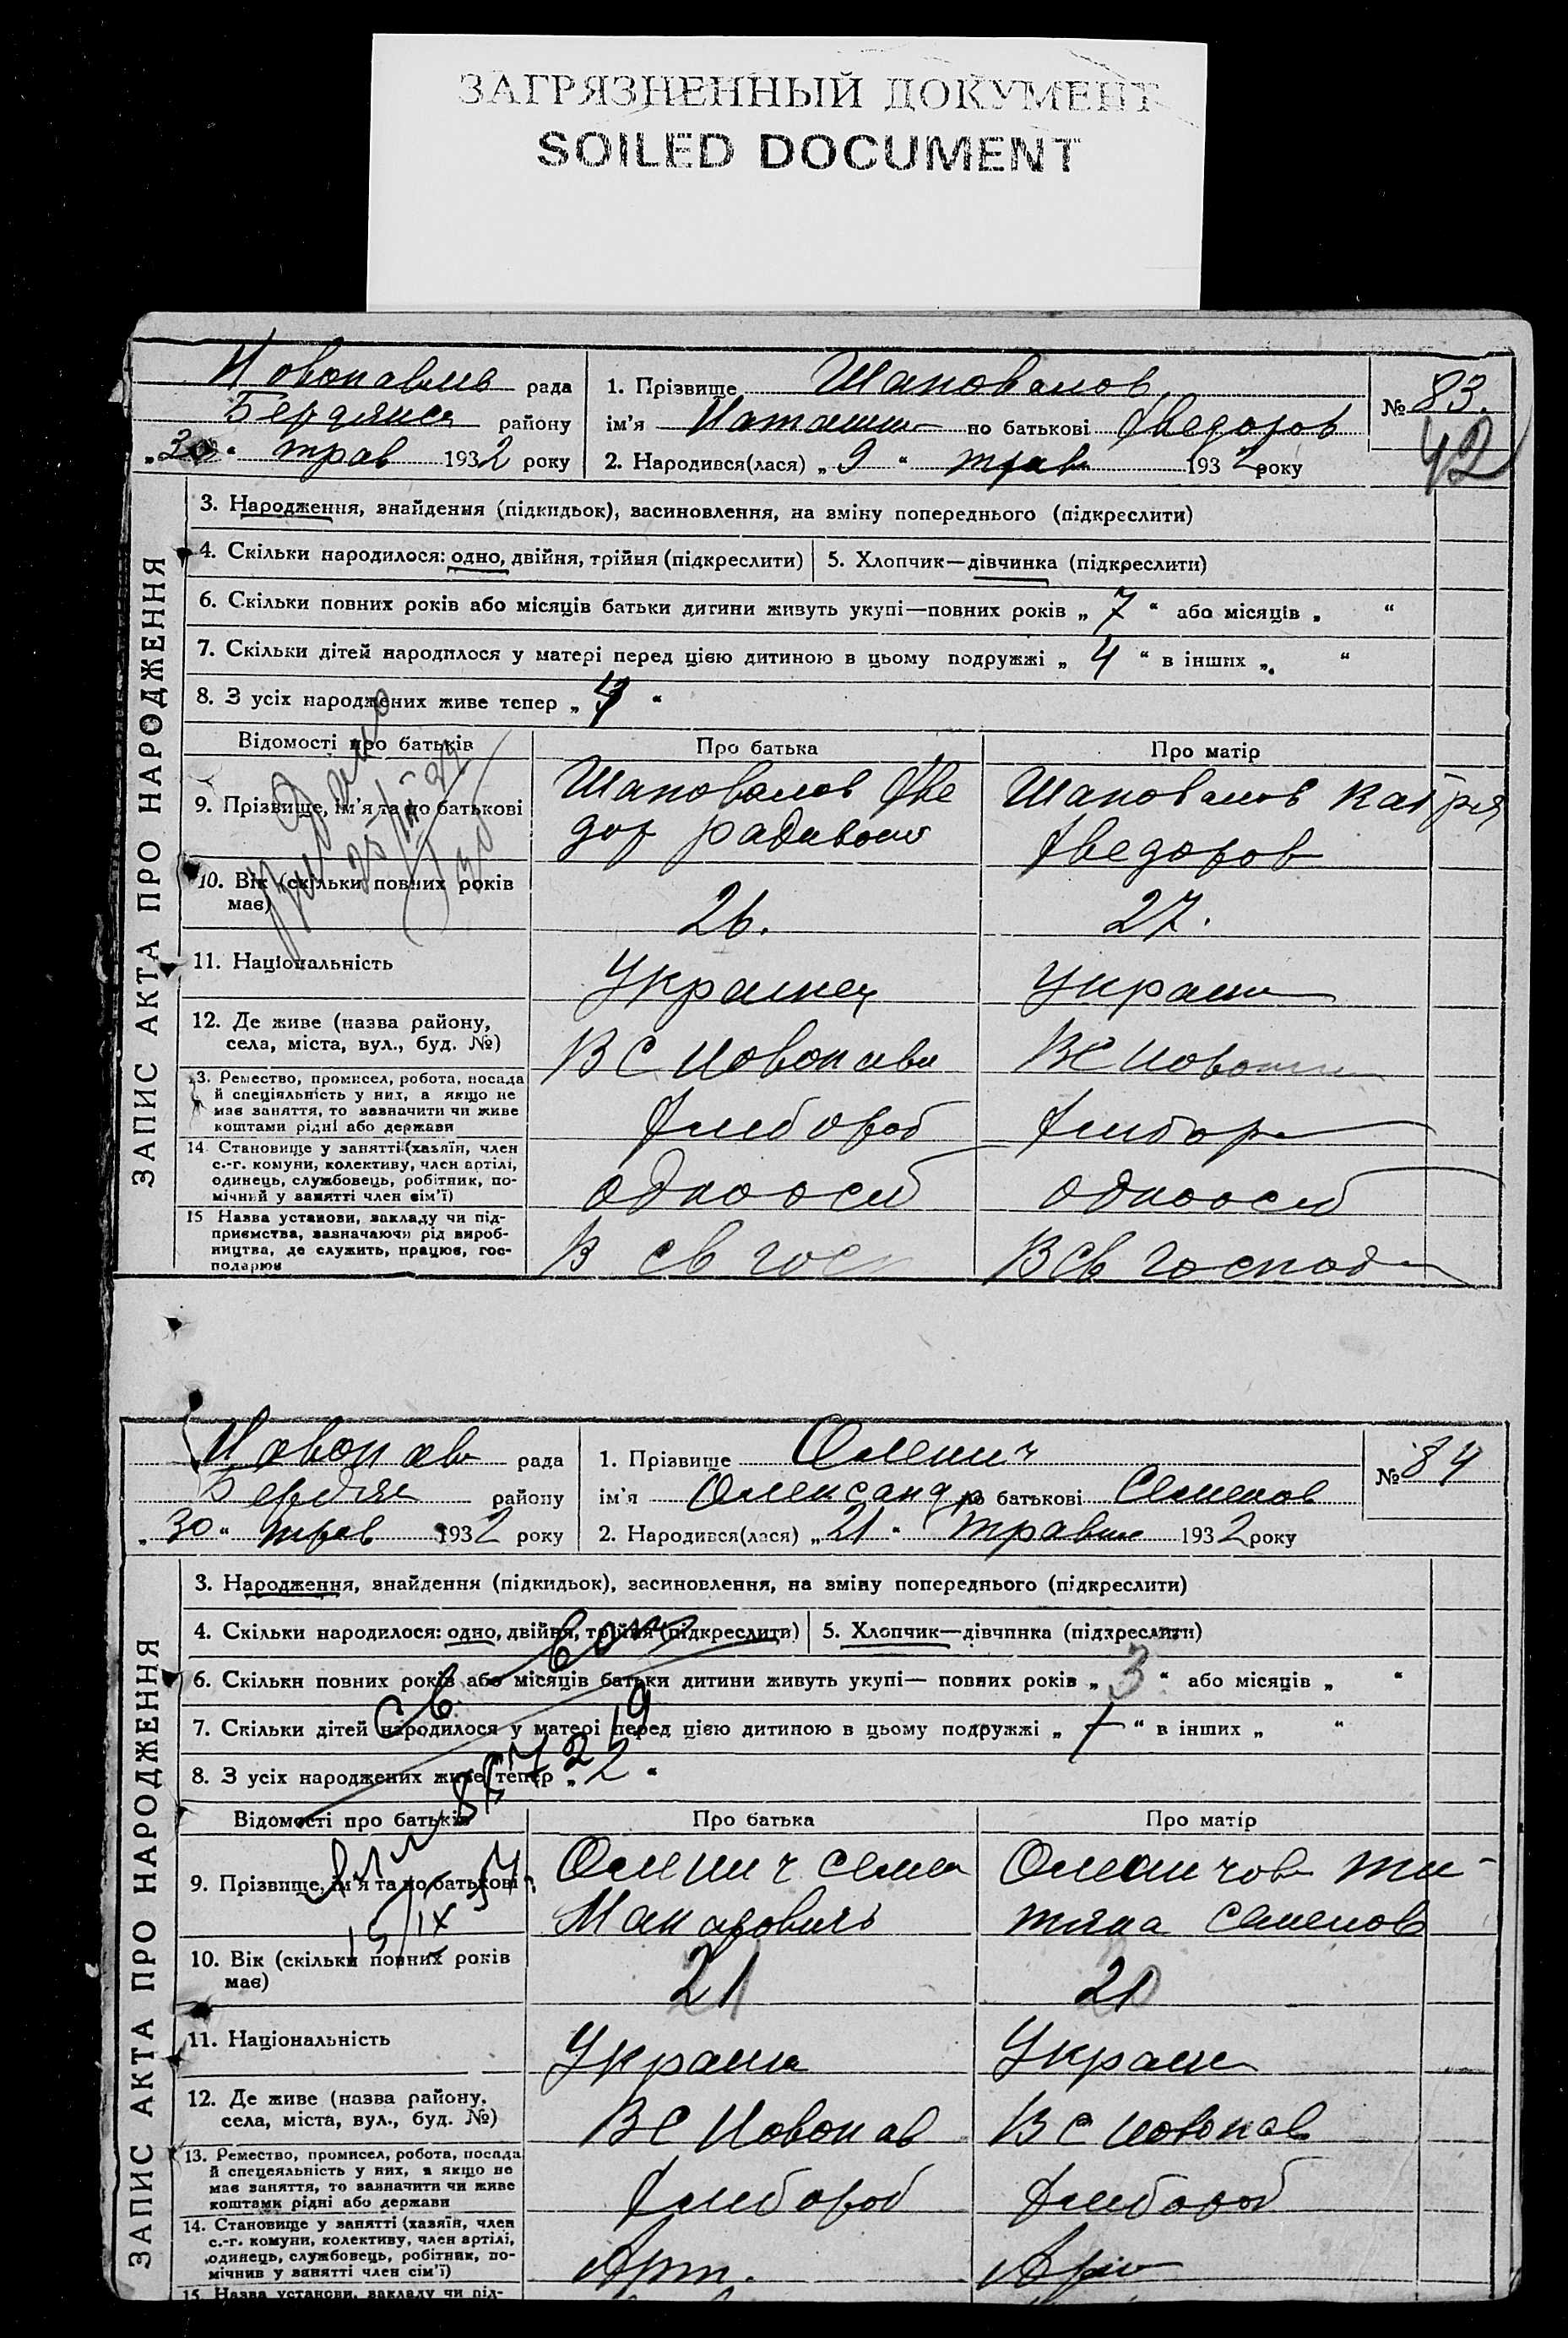 ЗАГРЯЗНЕННЫЙ ДОКУМЕНТ
SOILED DOCUMENT
рада
Бердянс району
„30“ трав 1932 року
1. Прізвище Шаповалов
ім'я Наташа по батькові Фведоров
2. Народився(лася) „9“ трав 1932 року
№ 83.
42
ЗАПИС АКТА ПРО НАРОДЖЕННЯ
3. Народження, знайдення (підкидьок), васиновлення, на вміну попереднього (підкреслити)
4. Скільки народилося: одно, двійня, трійня (підкреслити)
5. Хлопчик—дівчинка (підкреслити)
6. Скільки повних років або місяців батьки дитини живуть укупі—повних років „7“ або місяців „ “
7. Скільки дітей народилося у матері перед цією дитиною в цьому подружжі „4“ в інших „ “
8. З усіх народжених живе тепер „ “
Відомості про батьків
Про батька
Про матір
9. Прізвище, ім'я та по батькові
Шаповалов Фве
дор
Шаповалов
Фведоров
10. Вік (скільки повних років
має)
26.
27.
11. Національність
Украинец
Украин
12. Де живе (назва району,
села, міста, вул., буд. №)
ВС Новопав
ВС
13. Ремество, промисел, робота, посада
й спеціяльність у них, а якщо не
має заняття, то зазначити чи живе
коштами рідні або держави
Хлібороб
Хлібор
14. Становище у занятті (хазяїн, член
с.-г. комуни, колективу, член артілі,
одинець, службовець, робітник, по-
мічний у занятті член сім'ї)
одноосіб
одноосіб
15 Назва установи, закладу чи під-
приємства, зазначаючи рід вироб-
ництва, де служить, працює, гос-
подарює
В св гос
В св господ
Новопав рада
Бердян району
„30“ трав 1932 року
1. Прізвище Оленич
ім'я Олександр по батькові Семенов
2. Народився(лася) „21“ травня 1932 року
№ 84
ЗАПИС АКТА ПРО НАРОДЖЕННЯ
3. Народження, знайдення (підкидьок), васиновлення, на вміну попереднього (підкреслити)
4. Скільки народилося: одно, двійня, трійня (підкреслити)
5. Хлопчик—дівчинка (підкреслити)
6. Скільки повних років або місяців батьки дитини живуть укупі— повних років „3“ або місяців „ “
7. Скільки дітей народилося у матері перед цією дитиною в цьому подружжі „ “ в інших „ “
8. З усіх народжених живе тепер „2“
Відомості про батьків
Про батька
Про матір
9. Прізвище, ім'я та по батькові
Оленич Семен
Макарович
Оленичов Ти-
тяна Семенов
15/IX
10. Вік (скільки повних років
має)
21
11. Національність
Украин
Украин
12. Де живе (назва району.
села, міста, вул., буд. №)
ВС Новопав
ВС Новопав
13. Ремество, промисел, робота, посада
й спецеяльність у них, а якщо не
має заняття, то зазначити чи живе
коштами рідні або держави
Хлібороб
Хлібороб
14. Становище у занятті (хазяїн, член
с.-г. комуни, колективу, член артілі,
одинець, службовець, робітник, по-
мічнив у занятті член сім'ї)
Арт.
15. Назва установи, закладу чи під-